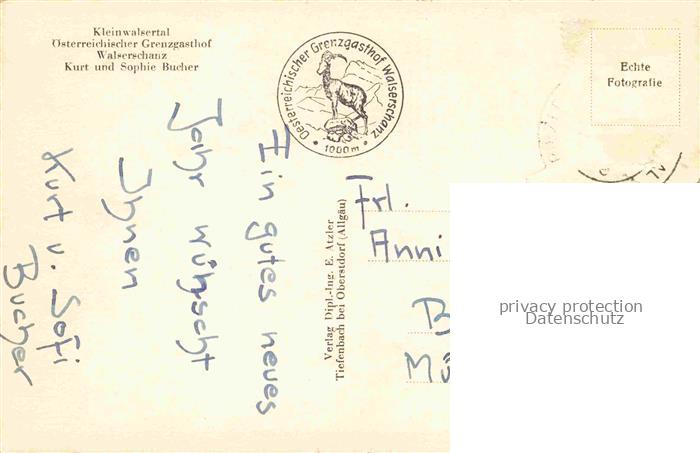 Kleinwalsertal
Österreichischer Grenzgasthof
Walserschanz
Kurt und Sophie Bucher
Oesterreichischer Grenzgasthof Walserschanz
1000 m
Echte
Fotografie
Ein gutes neues
Jahr wünscht
Ihnen
Kurt u. Sofi
Bucher
Verlag Dipl.-Ing. E. Atzler
Tiefenbach bei Oberstdorf (Allgäu)
Frl.
Anni
B
Mü
privacy protection
Datenschutz